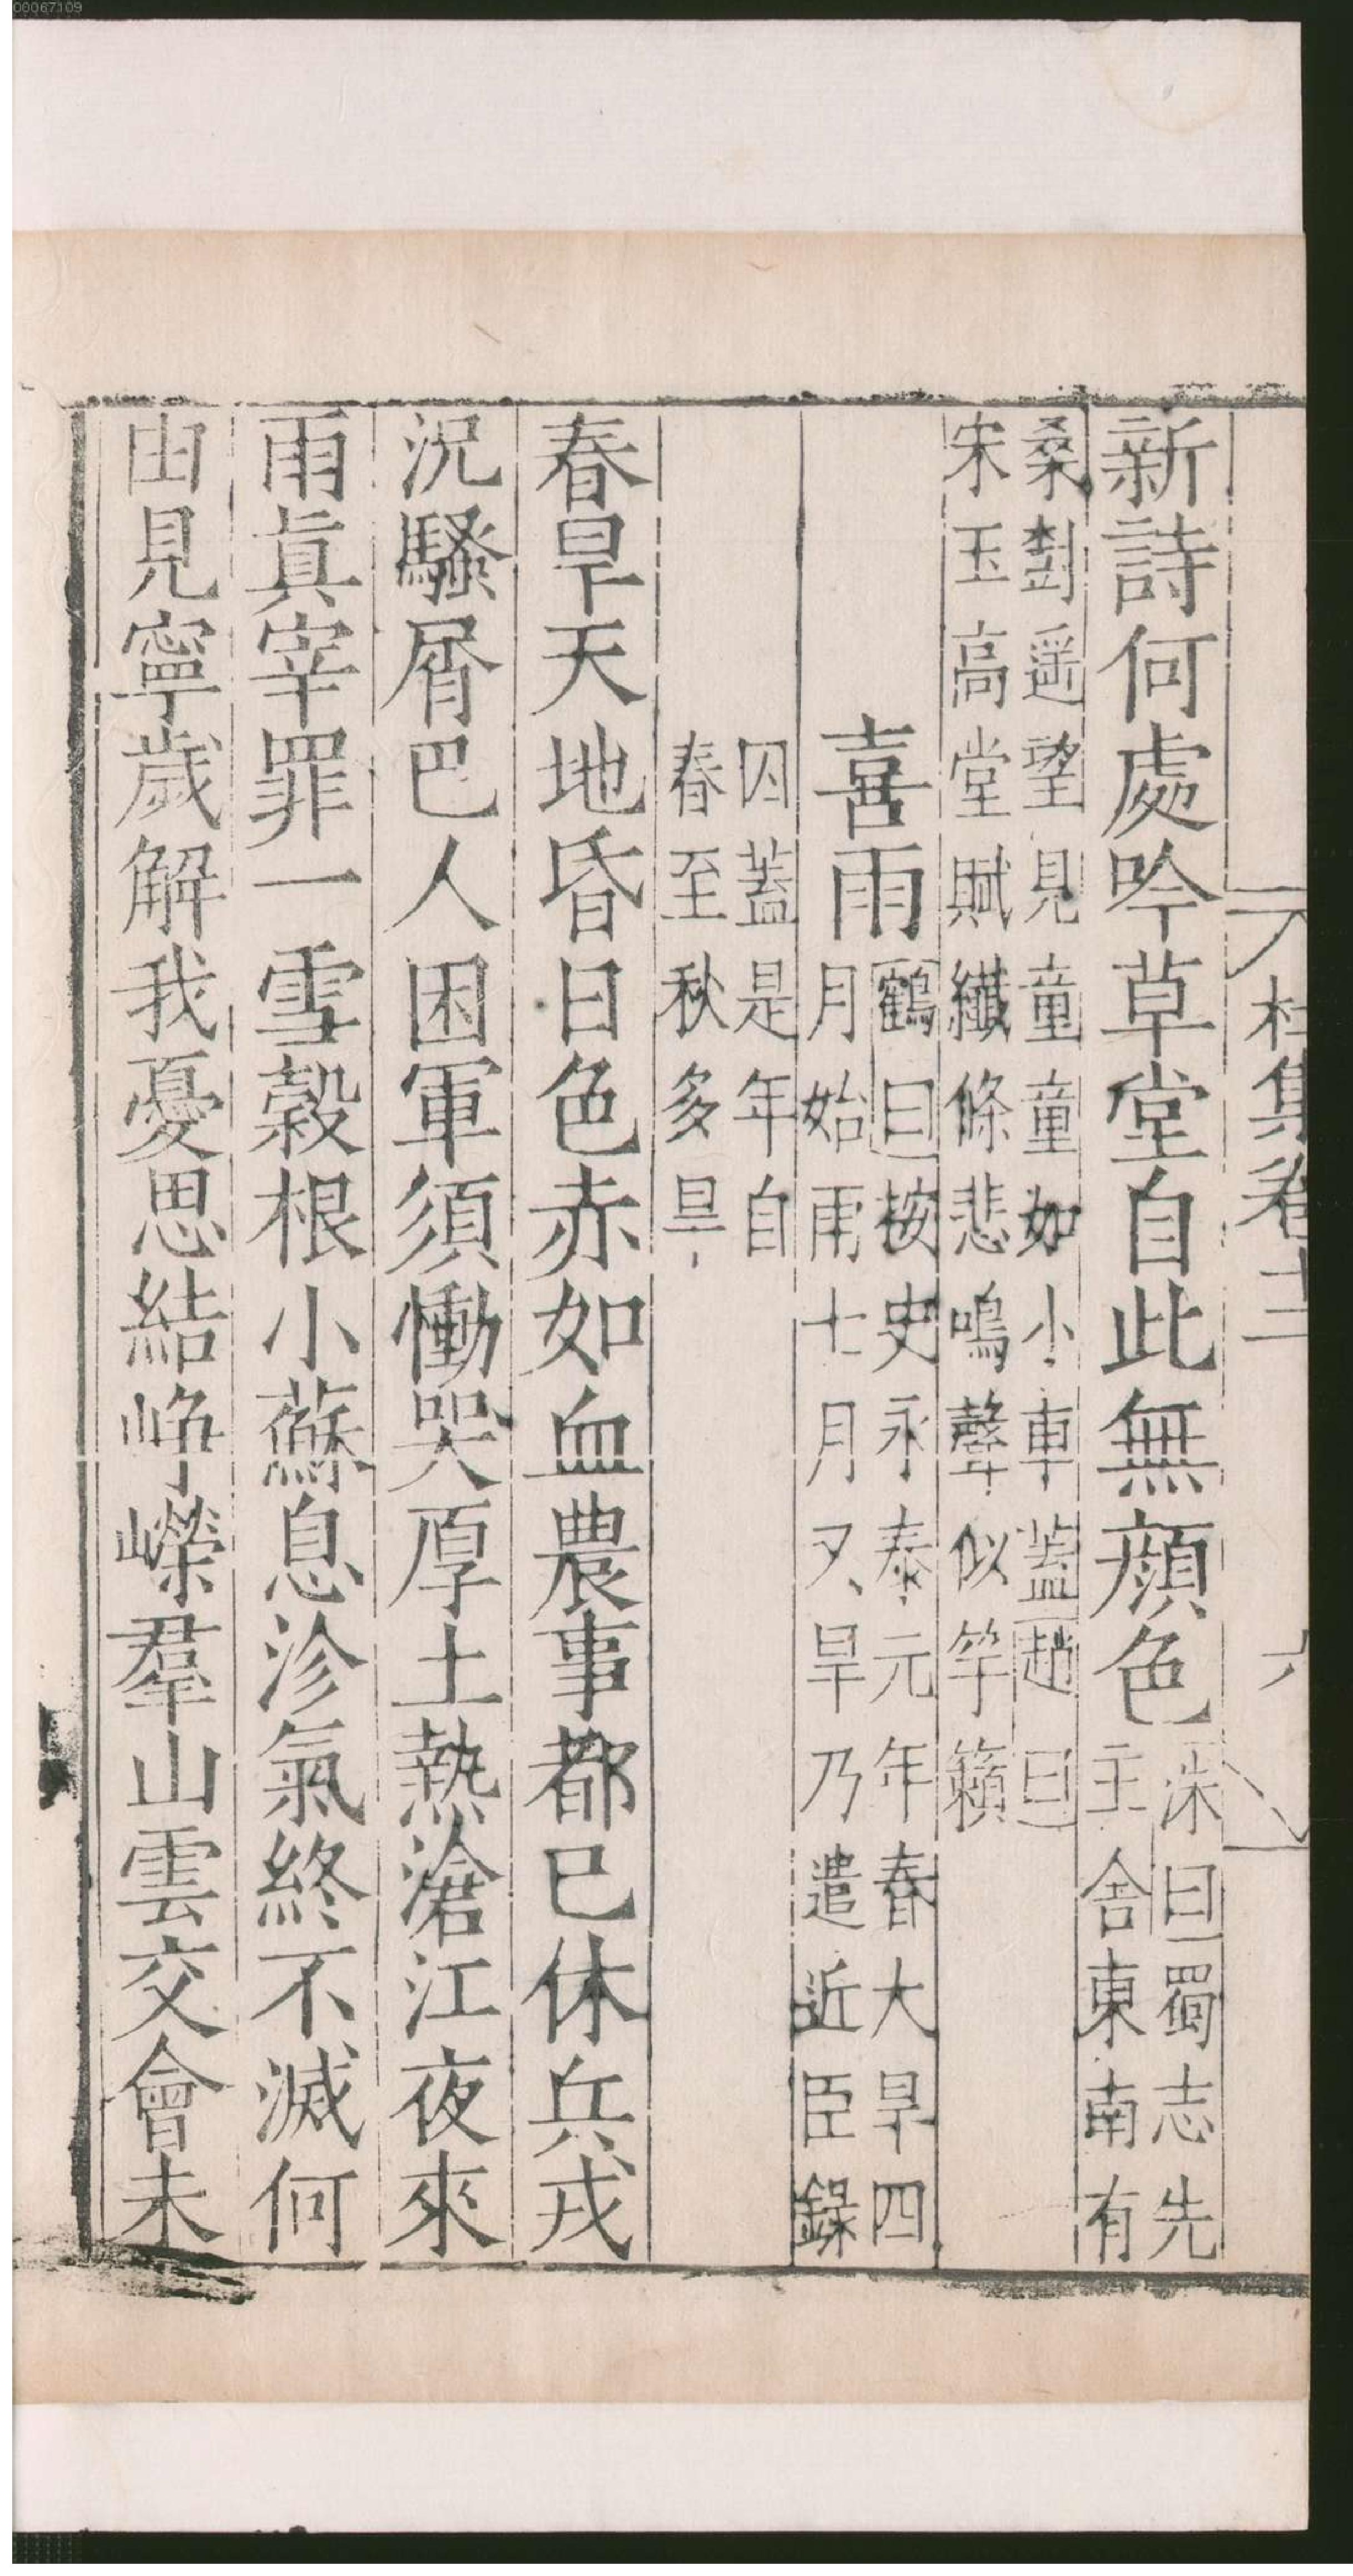 00067109
杜集卷十二
六
新詩何處吟草堂自此無顏色洙曰蜀志先
主舍東南有
桑樹遥望見童童如小車蓋趙曰
宋玉高堂賦纖條悲鳴聲似竽籟
喜雨鶴曰按史永泰元年春大旱四
月始雨七月又旱乃遣近臣錄
囚蓋是年自
春至秋多旱
春旱天地昏日色赤如血農事都已休兵戎
況騷屑巴人困軍須慟哭厚土熱滄江夜來
雨真宰罪一雪穀根小蘇息沴氣終不滅何
由見寧歲解我憂思結崢嶸羣山雲交會未